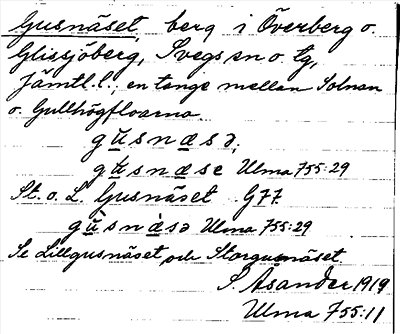 Gusnäset, berg i Överberg o.
Glissjöberg, Svegs sn o. tg,
Jämtl. l.; en tange mellan Solnan
o. Gullhögfloarna
gu̲snæ̲sə,
gu̲snæ̲se Ulma 755:29
St. o. L. Gusnäset G77
gù̲snæ̲̀sə Ulma 755:29
Se Lillgusnäset och Storgusnäset.
S. Åsander 1919
Ulma 755:11